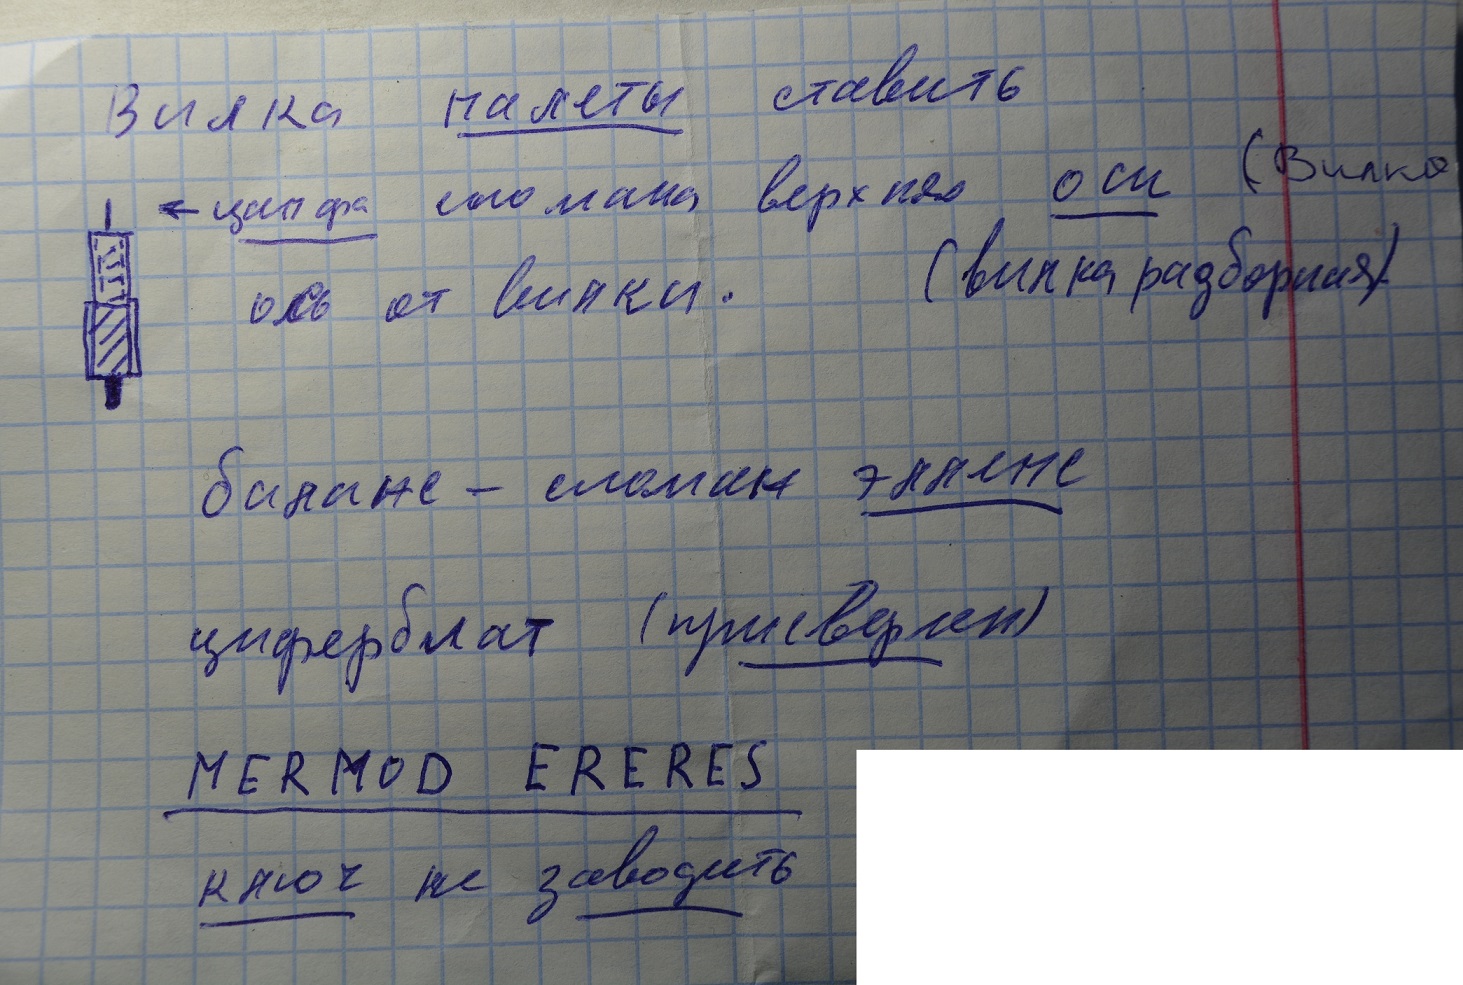 Вилка палеты ставить
← цапфа сломана верхняя оси (Вилка
ось от вилки. (вилка разборная)
баланс – сломан эллипс
циферблат (присверлен)
MERMOD ERERES
ключ не заводить